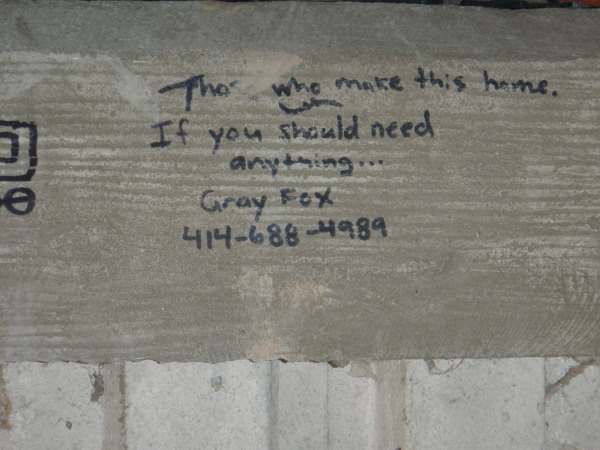 Those who make this home.
If you should need
anything...
Gray Fox
414-688-4989